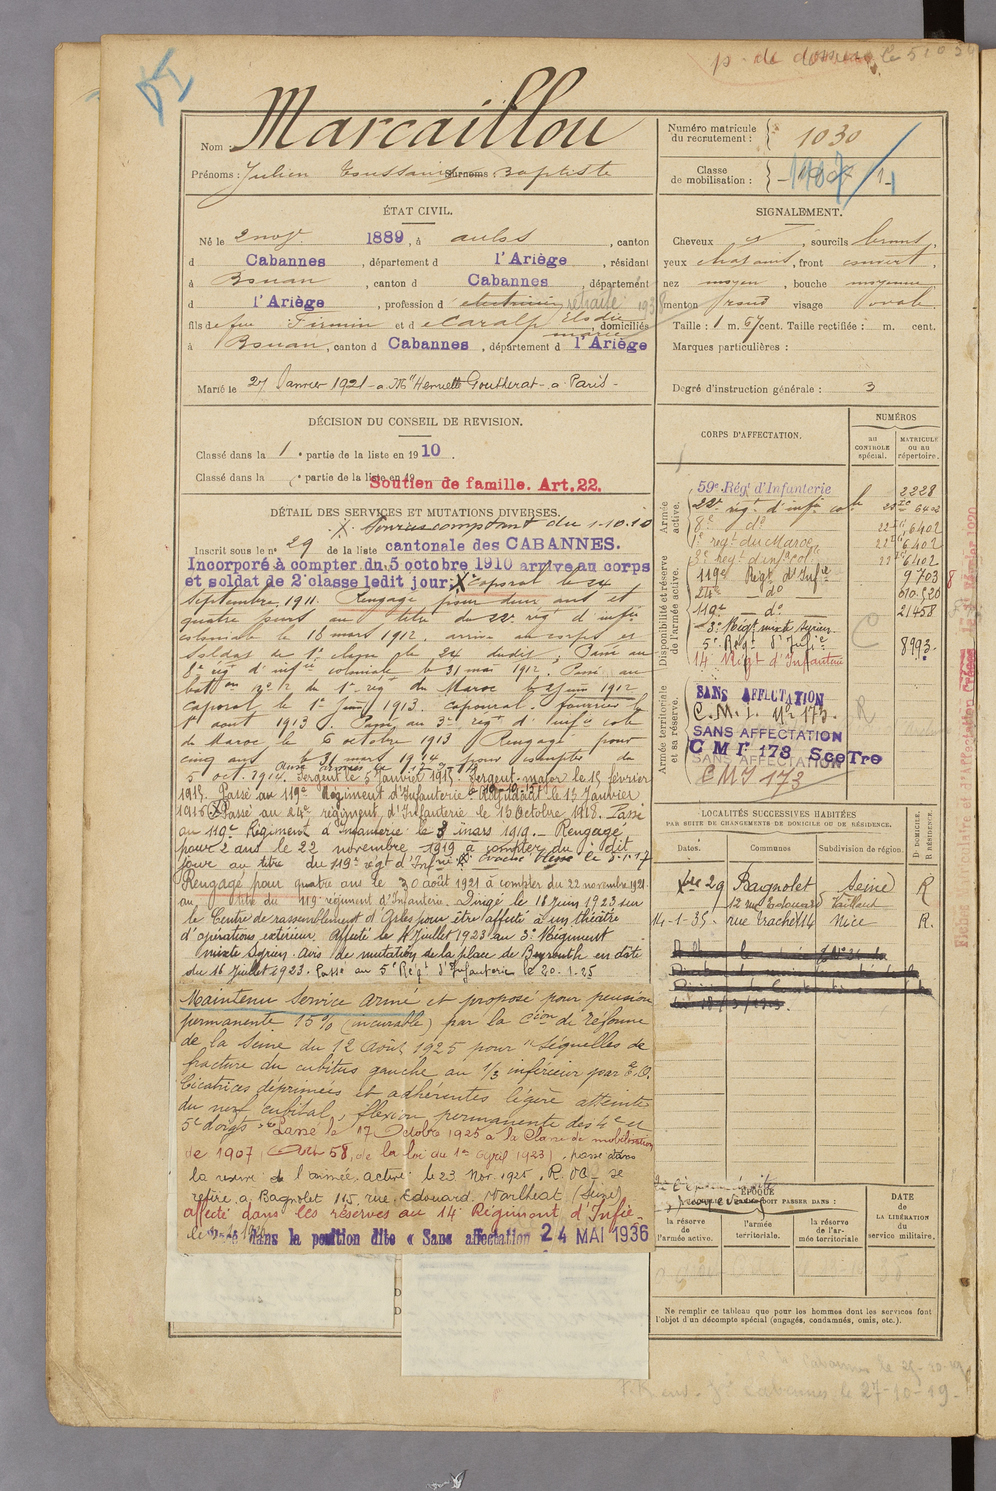 p. de domicile le
Nom Marcaillou
Prénoms : Julien Toussaint Surnoms : Baptiste
Numéro matricule du recrutement : 1030
Classe de mobilisation : 1907
ÉTAT CIVIL.
Né le 2 nov. 1889, à aulos, canton
d Cabannes, département d l'Ariège, résidant
à Bouan, canton d Cabannes, département
d l'Ariège, profession d' électricien retraité 1938
fils de feu Firmin et d e Caralp Elodie marie, domiciliés
à Bouan, canton d Cabannes, département d l'Ariège
Marié le 27 Janvier 1921 - a Mlle Henriette - a Paris -
SIGNALEMENT.
Cheveux , sourcils bruns,
yeux , front couvert,
nez moyen, bouche moyenne,
menton rond visage ovale
Taille : 1 m. 67 cent. Taille rectifiée : m. cent.
Marques particulières :
Degré d'instruction générale : 3
DÉCISION DU CONSEIL DE REVISION.
Classé dans la 1 e partie de la liste en 1910.
Classé dans la e partie de la liste en 19
Soutien de famille. Art. 22.
DÉTAIL DES SERVICES ET MUTATIONS DIVERSES.
X. Services comptant du 1-10-10
Inscrit sous le n° 29 de la liste cantonale des CABANNES.
Incorporé à compter du 5 octobre 1910 arrivé au corps
et soldat de 2e classe ledit jour; X caporal le 24
septembre 1911. Rengagé pour deux ans et
quatre jours au titre du 22e rég. d'infie
coloniale le 16 mars 1912. arrivé au corps et
soldat de 1e classe le 24 dudit; Passé au
8e rég d'infie coloniale le 31 mai 1912. Passé au
baton n° 12 du 1er regt du Maroc le 2 juin 1912
caporal le 1er juin 1913. caporal fourrier le
1er aout 1913. Passé au 3e regt d'infie cole
du Maroc le 6 octobre 1913 Rengagé pour
cinq ans le 31 mars 1914 pour compter du
5 oct. 1914. Sergent le 5 Janvier 1915. Sergent-major le 15 février
1915. Passé au 119e Régiment d'Infanterie Adjudant le 13 Janvier
1916 Passé au 24e régiment d'Infanterie le 13 Octobre 1918. Passé
au 119e Régiment d'Infanterie le 8 mars 1919. - Rengagé
pour 2 ans le 22 novembre 1919 à compter du dit
jour au titre du 119e régt d'Infie blessé le
Rengagé pour quatre ans le 30 août 1921 à compter du 22 novembre 1921
au titre du 119e régiment d'Infanterie. Dirigé le 16 Juin 1923 sur
le Centre de rassemblement d'Arles pour être affecté à un théâtre
d'opérations extérieur. Affecté le 4 Juillet 1923 au 3e Régiment
mixte Syrien. Avis de mutation de la place de Beyrouth en date
du 16 Juillet 1923. Passé au 5e Régt d'Infanterie le 20.1.25
Maintenu Service armé et proposé pour pension
permanente 15% (incurable) par la Cion de réforme
de la Seine du 12 Août 1925 pour "Séquelles de
fracture du cubitus gauche au 1/3 inférieur par E.O.
Cicatrices déprimées et adhérentes légère atteinte
du nerf cubital, flexion permanente des 4e et
5e doigts". Passé le 17 Octobre 1925 à la Classe de mobilisation
de 1907 (Art 58, de la loi du 1er Avril 1923), passé dans
la réserve de l'armée active le 23 Nov. 1925. Se
retire a Bagnolet 115, rue Edouard (Seine)
affecté dans les réserves au 14e Régiment d'Infie
dans la position dite « Sans affectation 24 MAI 1936
CORPS D'AFFECTATION.
NUMÉROS
au CONTROLE spécial.
MATRICULE ou au répertoire.
Armée active.
59e Régt d'Infanterie 2228
22e régt d'infie cole 6402
8e do 6402
1er régt du Maroc 6402
3e regt d'infie col 6402
Disponibilité et réserve de l'armée active.
119e Régt d'Infie 9703
24e do
119e do 21458
3e Régt mixte syrien
5e Régt d'Infie 8993
14e Régt d'Infanterie
Armée territoriale et sa réserve.
SANS AFFECTATION
C.M.I. No 173.
SANS AFFECTATION
C M Ie 173 SceTre
SANS AFFECTATION
CMI 173
LOCALITÉS SUCCESSIVES HABITÉES
PAR SUITE DE CHANGEMENTS DE DOMICILE OU DE RÉSIDENCE.
Dates. Communes Subdivision de région. D DOMICILE. R RÉSIDENCE.
29 Bagnolet Seine R
12 rue Edouard Vaillant
14-1-35. rue Trachel 14 Nice R.
ÉPOQUE
DOIT PASSER DANS :
la réserve de l'armée active.
l'armée territoriale.
la réserve de l'armée territoriale
DATE de LA LIBÉRATION du service militaire.
Ne remplir ce tableau que pour les hommes dont les services font
l'objet d'un décompte spécial (engagés, condamnés, omis, etc.).
Cabannes, le 27-10-19-